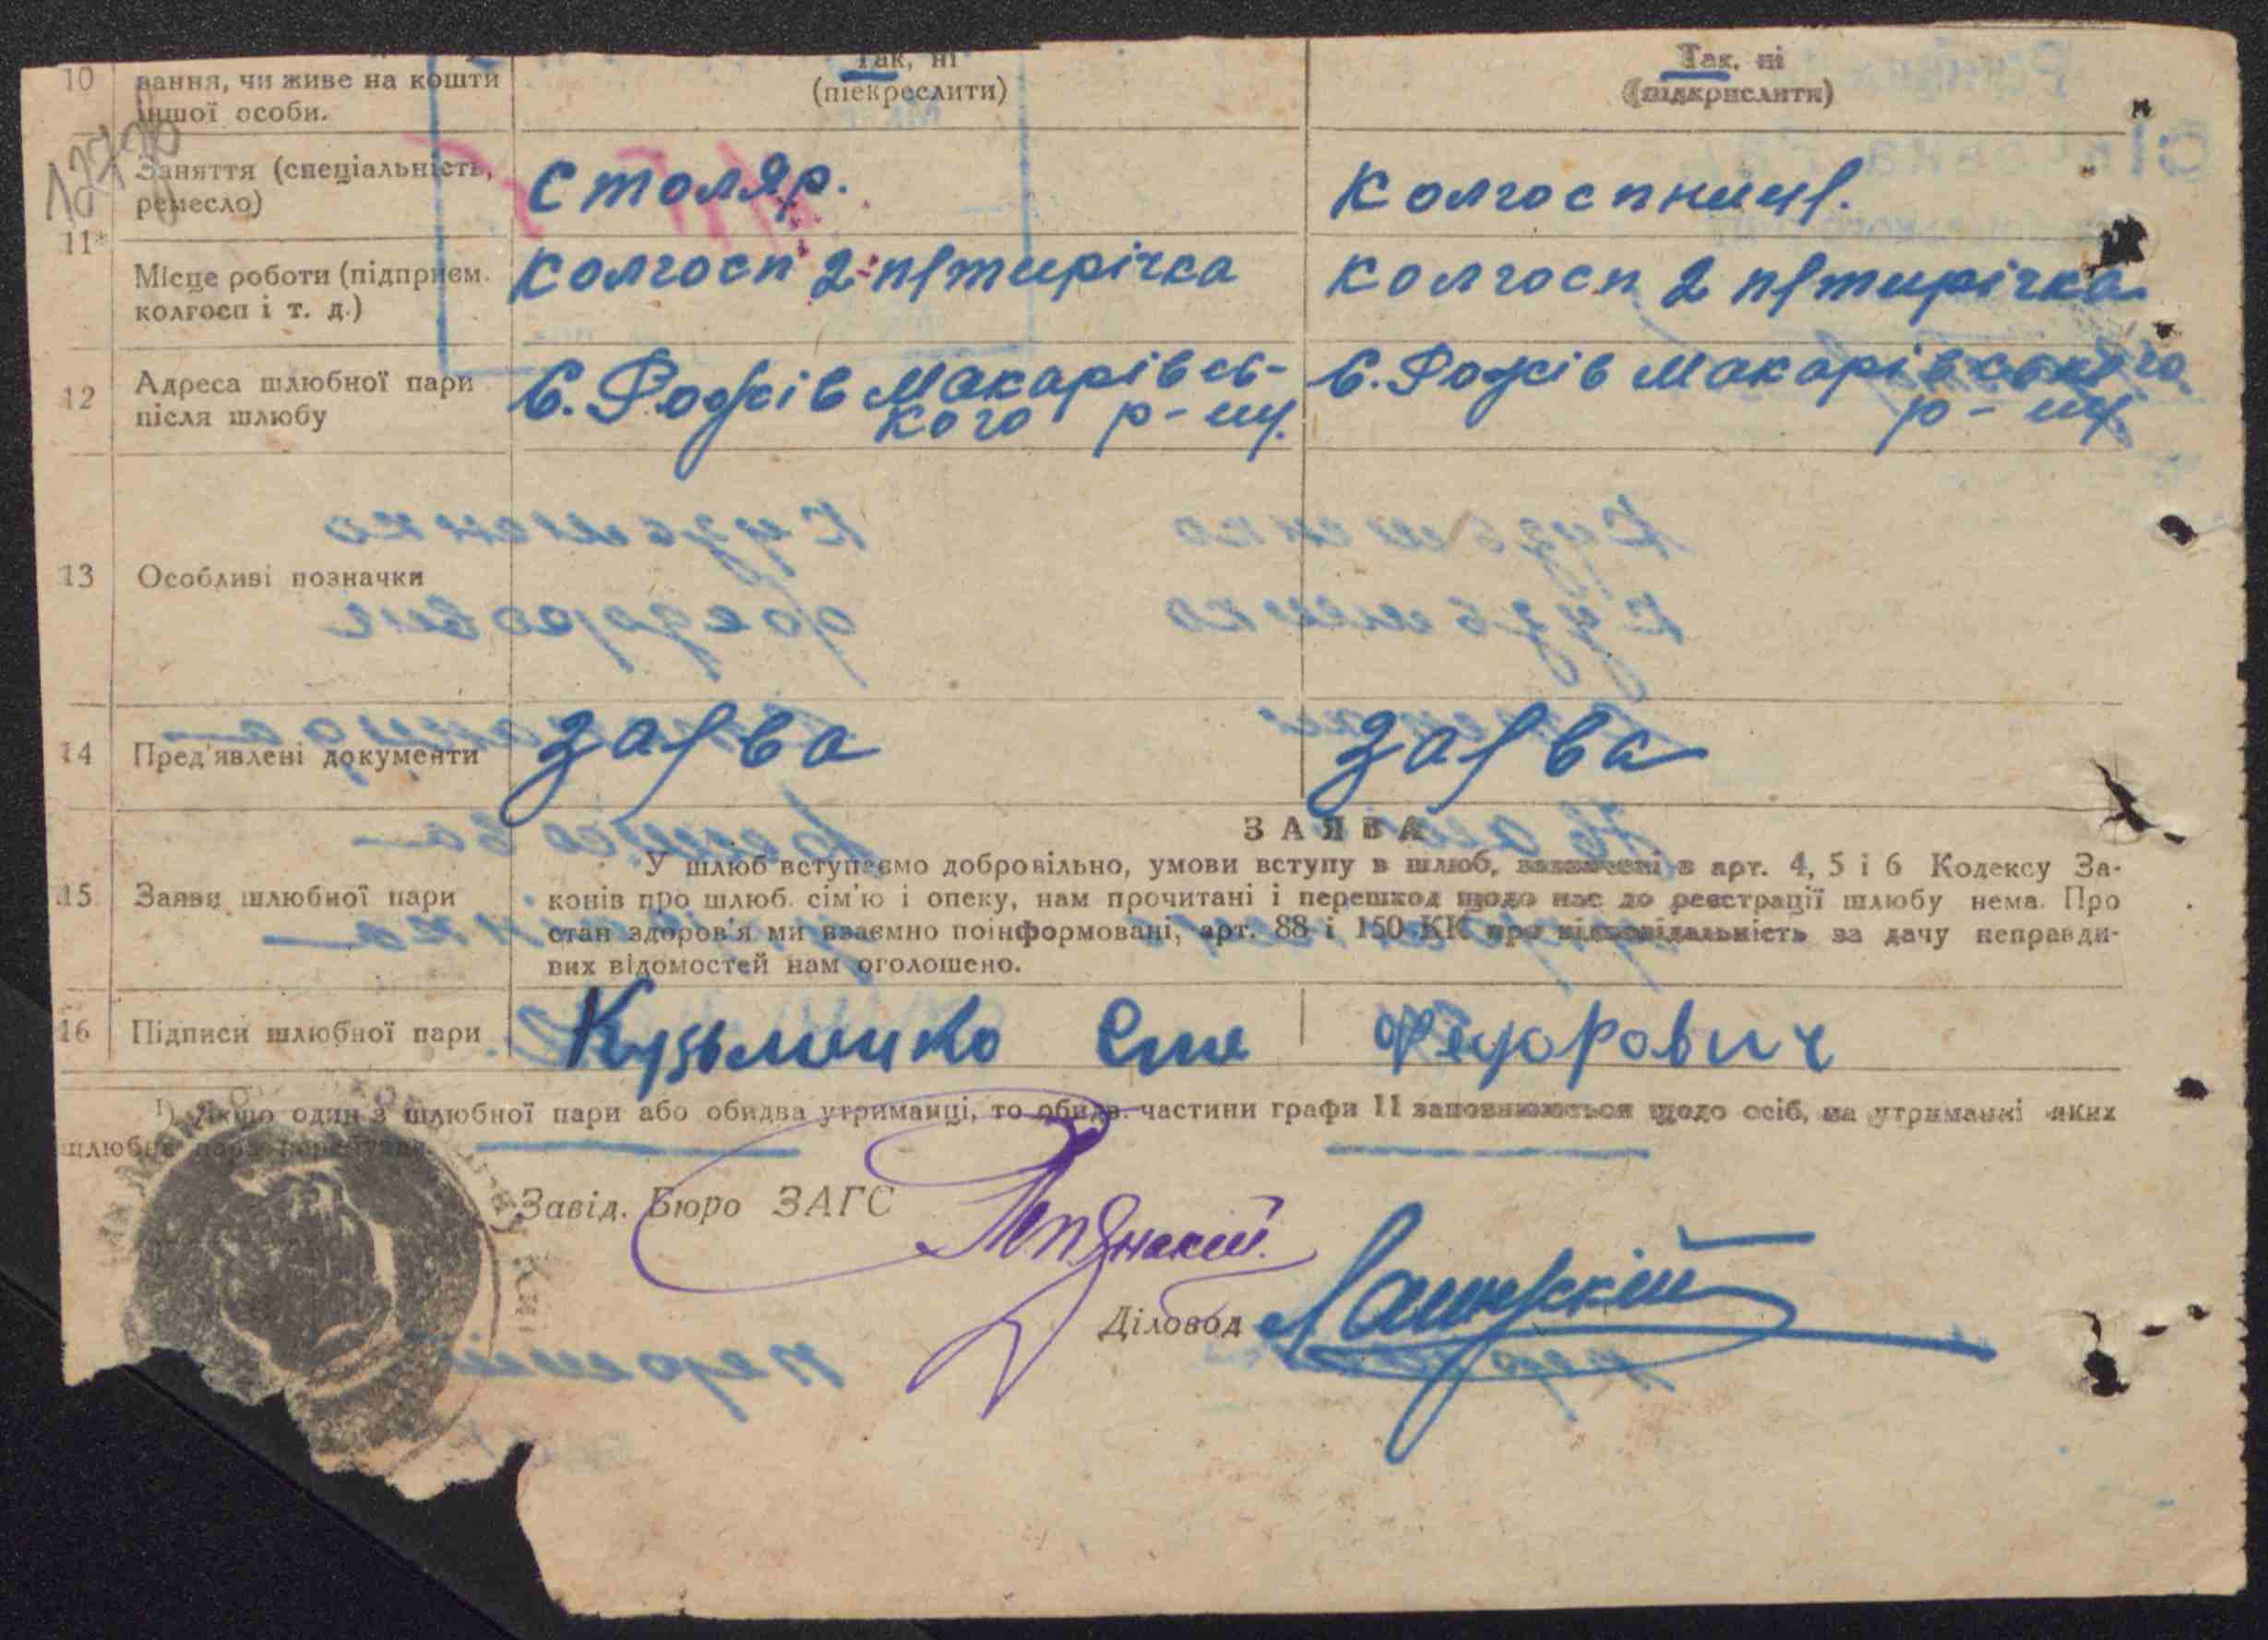 10 вання, чи живе на кошти іншої особи.
Так, ні
(піекреслити)
Так, ні
(підкрислити)
11
Заняття (спеціальність, ремесло)
Столяр.
Колгоспниця.
Місце роботи (підприєм. колгосп і т. д.)
Колгосп 2 пятирічка
Колгосп 2 пятирічка
12 Адреса шлюбної пари після шлюбу
С. Рожів Макарівсь-
кого р-ну.
С. Рожів Макарівського
р-ну.
13 Особливі позначки
14 Пред'явлені документи
Заява
Заява
15 Заяви шлюбної пари
ЗАЯВА
У шлюб вступаємо добровільно, умови вступу в шлюб, зазначені в арт. 4, 5 і 6 Кодексу За-
конів про шлюб. сім'ю і опеку, нам прочитані і перешкод щодо нас до реєстрації шлюбу нема. Про
стан здоров'я ми взаємно поінформовані, арт. 88 і 150 КК про відповідальність за дачу неправди-
вих відомостей нам оголошено.
16 Підписи шлюбної пари
Кузьменко Федорович
1) Якщо один з шлюбної пари або обидва утриманці, то обидв. частини графи 11 заповнюються щодо осіб, на утриманні яких
шлюбна пара перебуває.
Завід. Бюро ЗАГС
Діловод